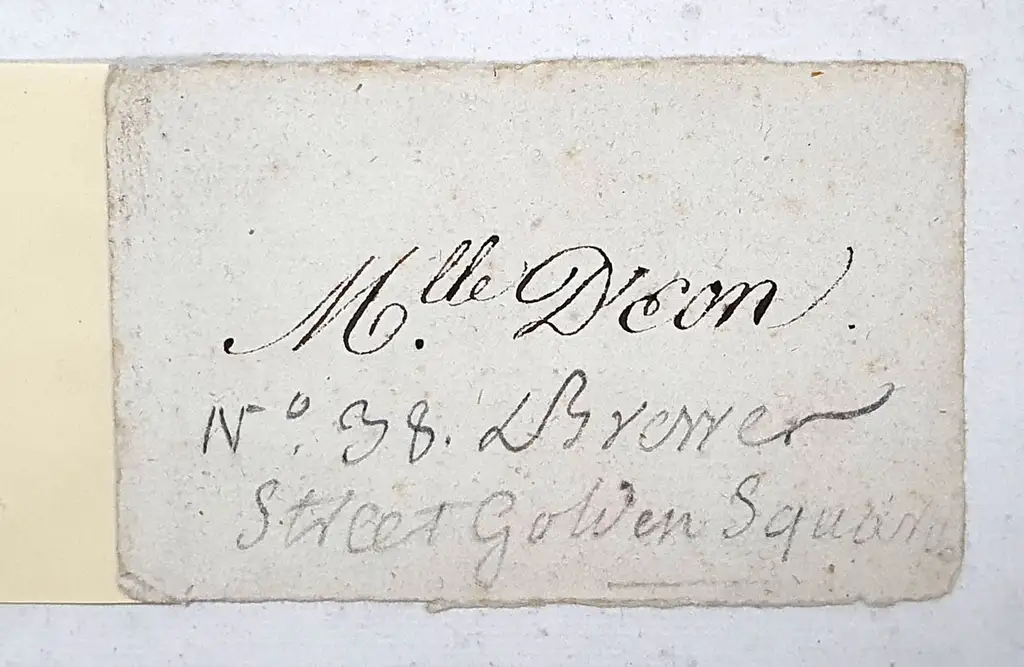 M.lle D'eon.
No. 38. Brewer
Street Golden Square